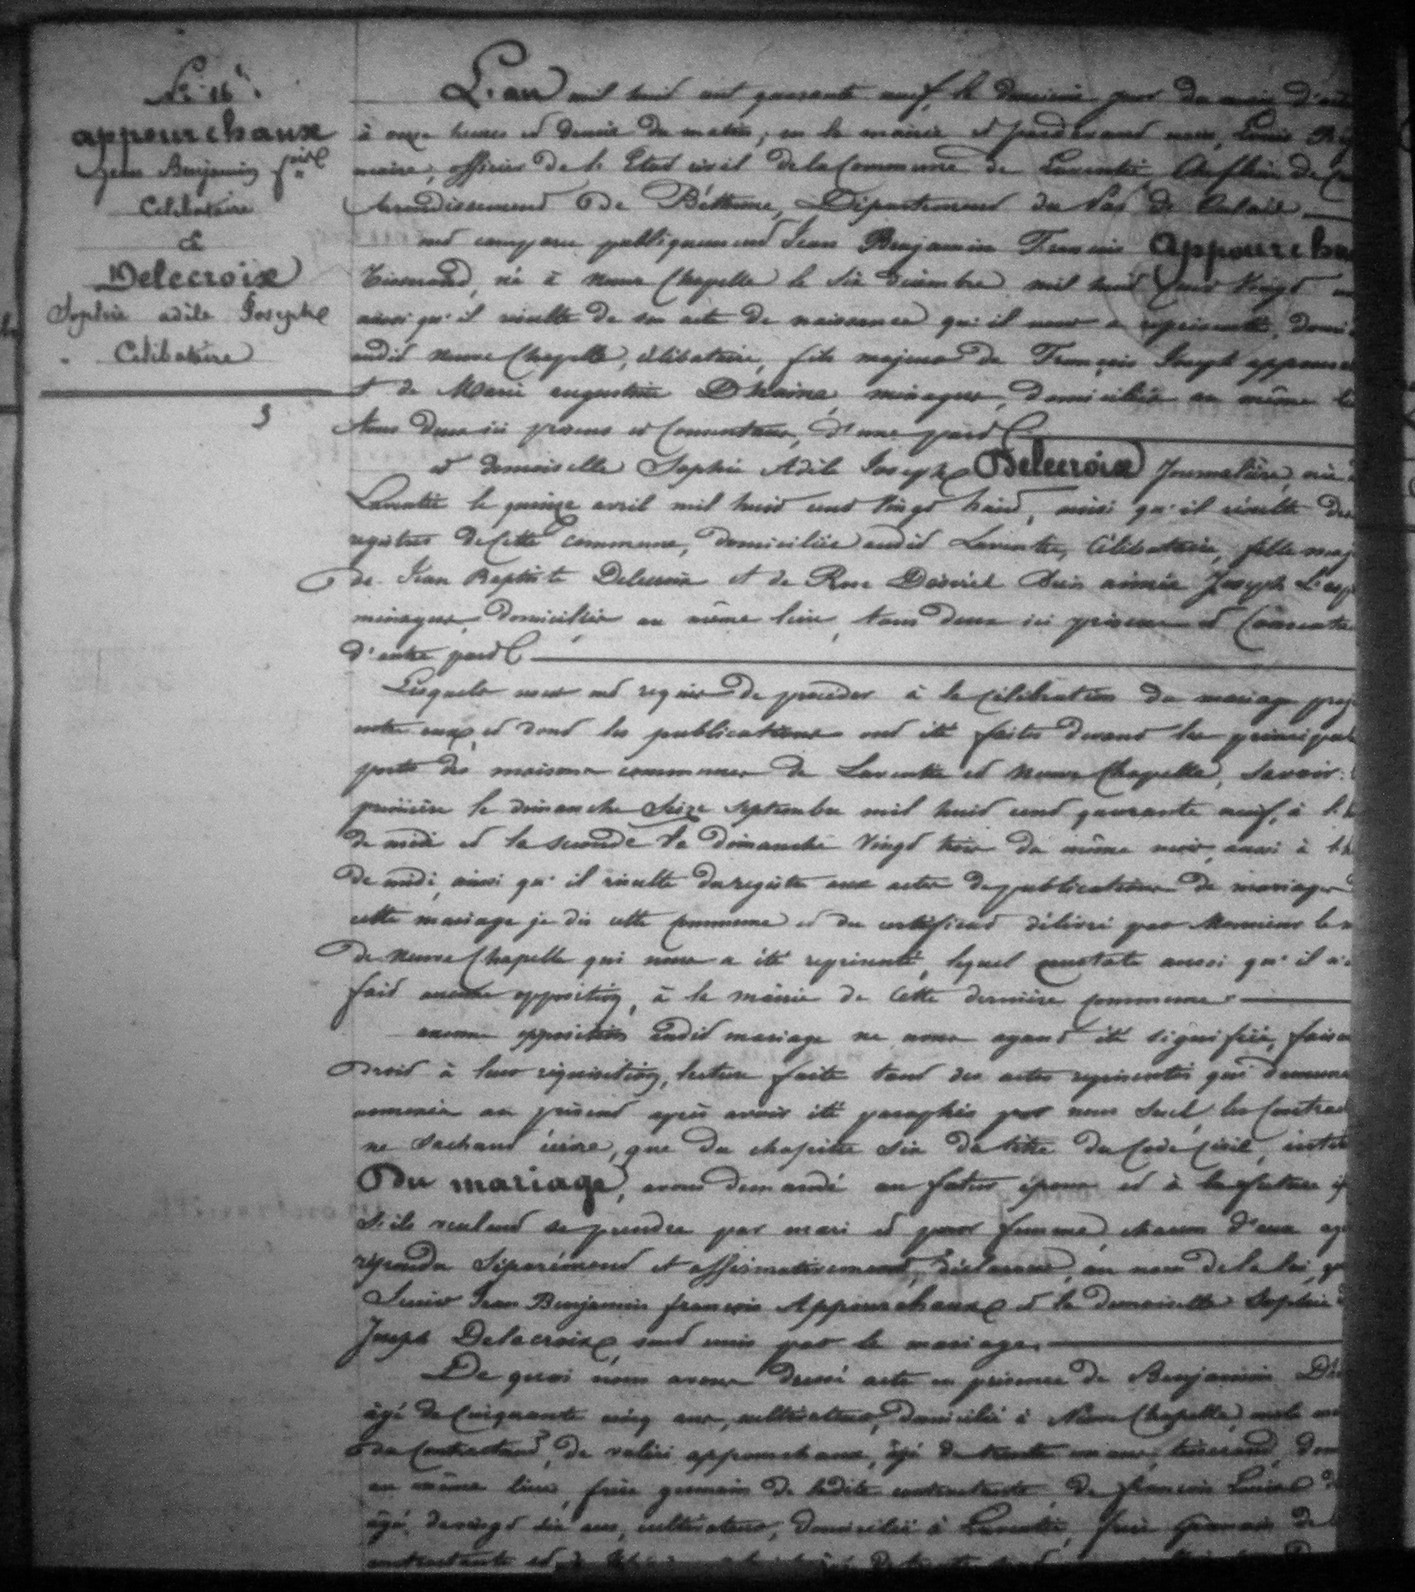 N.° 16.
appourchaux
Jean Benjamin f.ois
Célibataire
&
Delecroix
Sophie adèle Joseph
Célibataire
L'an mil huit cent quarante neuf, le deuxième jour du mois d'oct
à onze heures et demie du matin, en la mairie et pardevant nous, Louis
maire, officier de l'Etat civil de la Commune de Laventie Chef lieu de Can
Arrondissement de Béthune, Département du Pas de Calais
ont comparu publiquement Jean Benjamin François Appourchau
Tisserand, né à Neuve Chapelle le six décembre mil huit cent vingt
ainsi qu'il résulte de son acte de naissance qu'il nous a représenté, domi
audit Neuve Chapelle, célibataire, fils majeur de François Joseph appourc
et de Marie augustine Dhaine, ménagers, domiciliés au même li
tous deux ici présens et Consentans, d'une part
et demoiselle Sophie Adèle Joseph Delecroix Journalière, née à
Laventie le quinze avril mil huit cent vingt huit, ainsi qu'il résulte des
registres de Cette commune, domiciliée audit Laventie, Célibataire, fille maj
de Jean Baptiste Delecroix et de Rose Désirée aimée Joseph
ménagers, domiciliés au même lieu, tous deux ici présens et Consenta
d'autre part
Lesquels nous ont requis de procéder à la célébration du mariage proj
entre eux, et dont les publications ont été faites devant la principale
porte des maisons communes de Laventie et Neuve Chapelle, Savoir: l
première le dimanche Seize septembre mil huit cent quarante neuf, à l'h
de midi et la seconde le dimanche vingt trois du même mois, aussi à l'h
de midi, ainsi qu'il résulte du registre aux actes de publications de mariages d
cette mariage je dis cette commune et du certificat délivré par Monsieur le m
de Neuve Chapelle qui nous a été représenté, lequel constate aussi qu'il n'a
fait aucune opposition, à la mairie de cette dernière commune
aucune opposition audit mariage ne nous ayant été signifiée, faisan
droit à leur réquisition, lecture faite tant des actes représentés qui demeure
annexés au présent après avoir été paraphés par nous seul, les Contrac
ne sachant écrire, que du chapitre six du titre du Code Civil, intit
Du mariage, avons demandé au futur époux et à la future ép
s'ils veulent se prendre pour mari et pour femme, chacun d'eux ay
répondu séparément et affirmativement, déclarons, au nom de la loi, qu
Sieur Jean Benjamin françois Appourchaux et la demoiselle Sophie a
Joseph Delecroix, sont unis par le mariage.
De quoi nous avons dressé acte en présence de Benjamin Dh
âgé de Cinquante cinq ans, cultivateur, domicilié à Neuve Chapelle, oncle
du Contractant, de valéri appourchaux, âgé de trente un ans, tisserand, dom
au même lieu, frère germain de ledite contractante, de françois Louis D
âgé de vingt six ans, cultivateur, domicilié à Laventie, frère Germain de
contractante et de